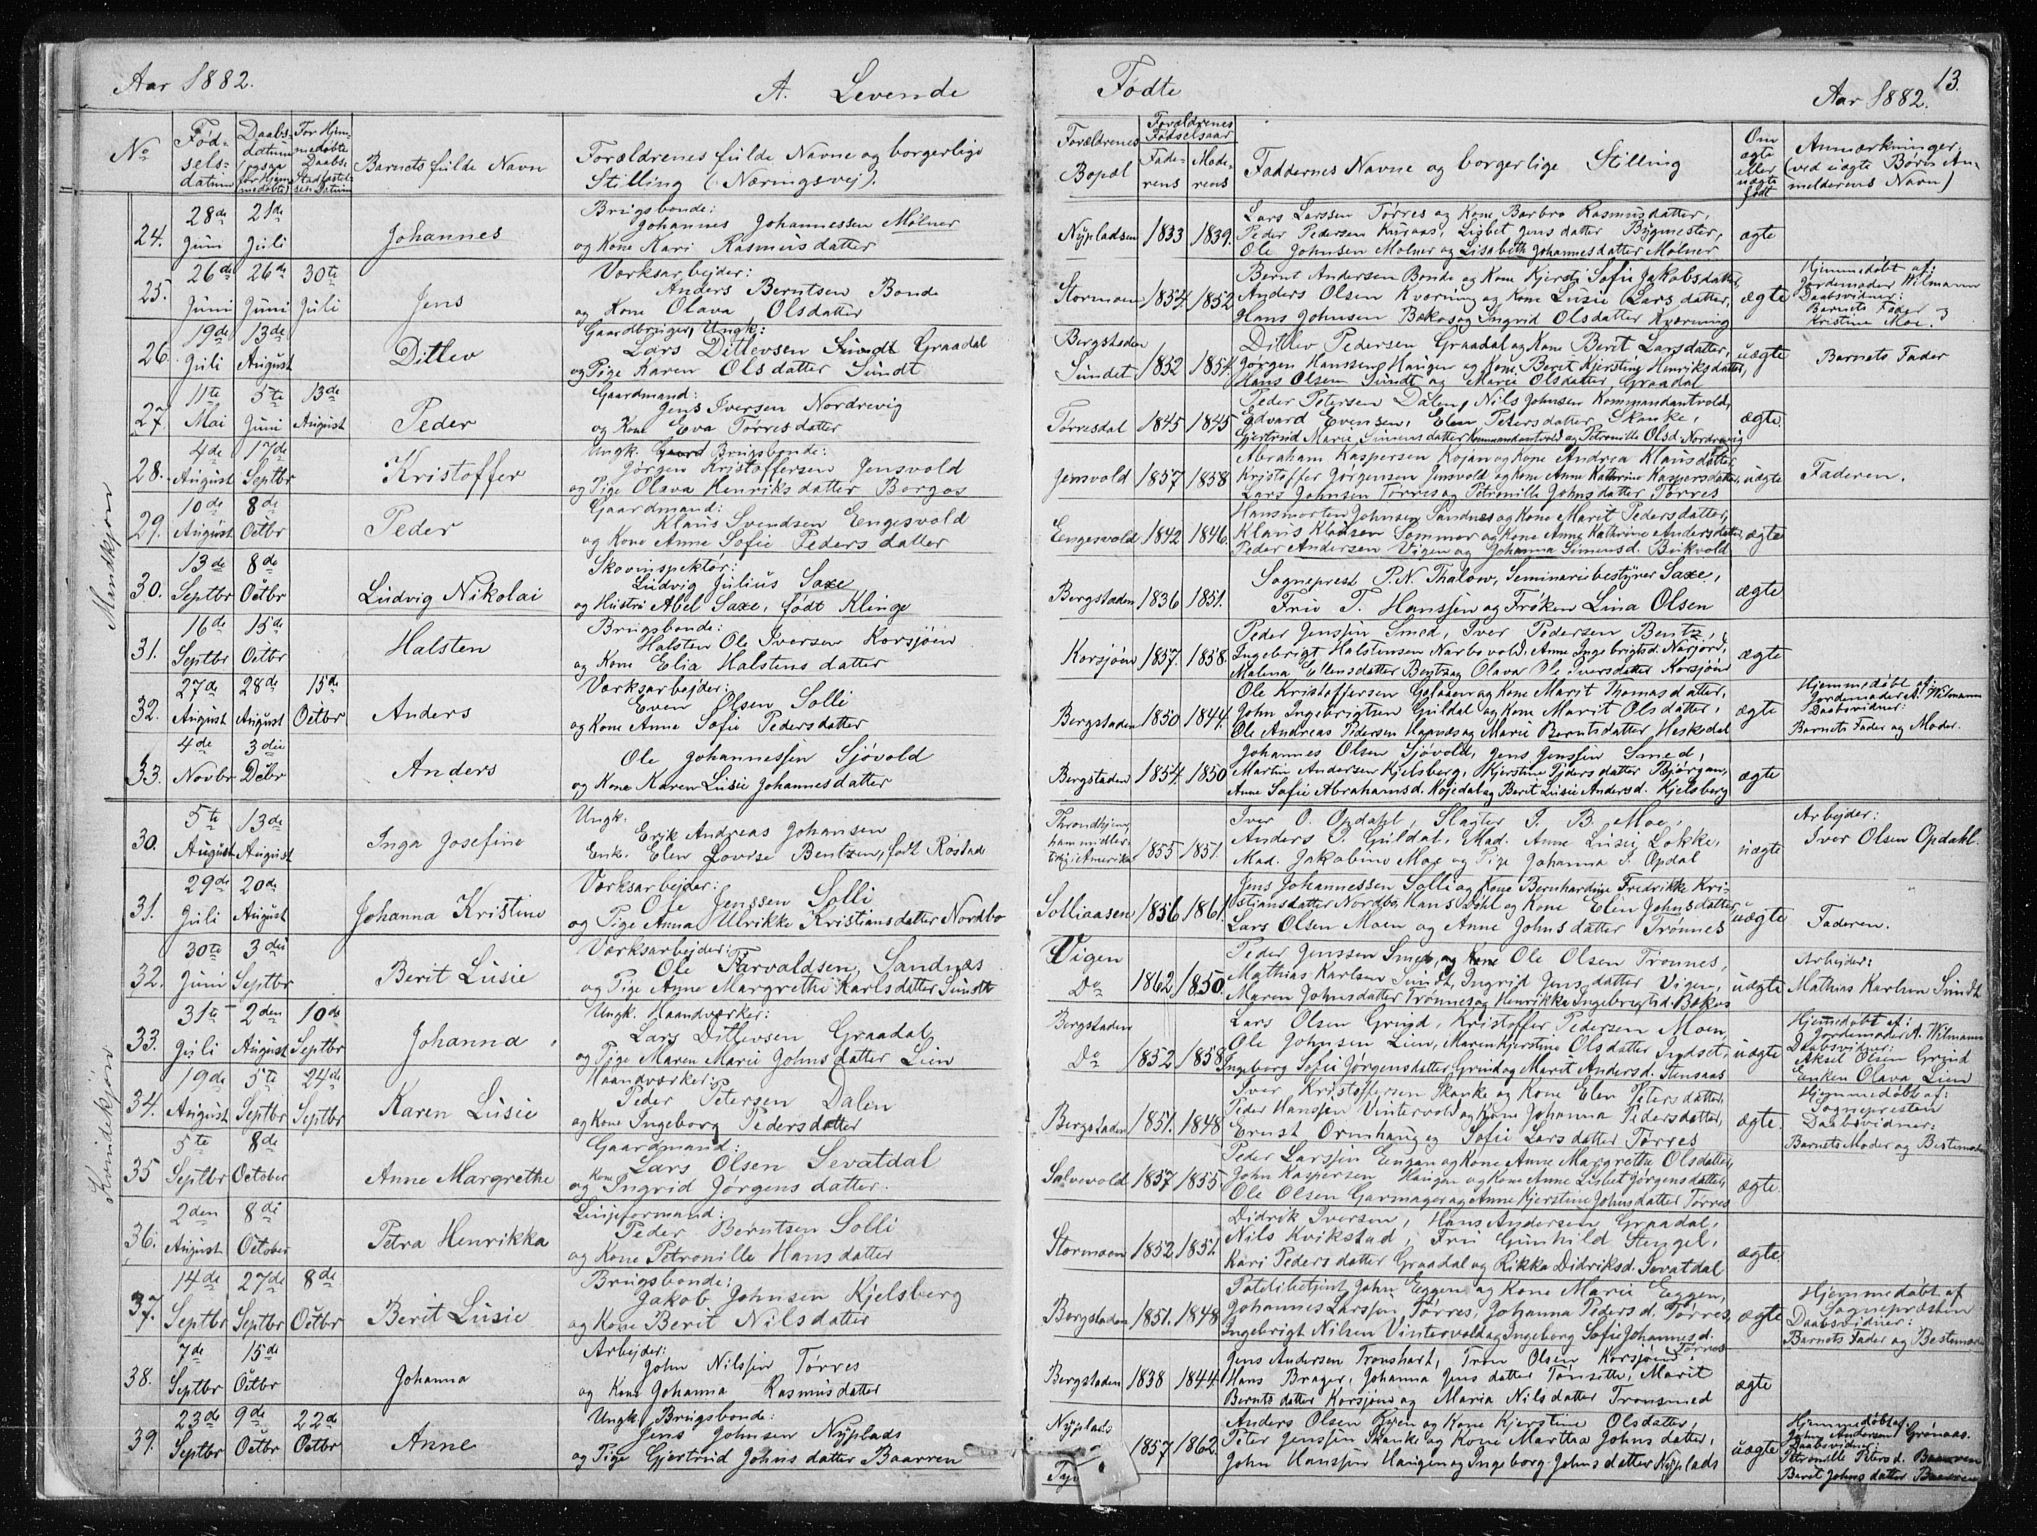 Aar 1882.
A. Levende
Fødte
Aar 1882.
13.
No
Fød-
sels-
datum
Daabs-
datum
(ogsaa
for hjem-
medøbte)
For hjem-
medøbte
Daabs-
Stadfæstel-
sen Datum
Barnets fulde Navn
Forældrenes fulde Navne og borgerlige
Stilling (Næringsvej).
Forældrenes
Bopæl
Forældrenes
Fødselsaar
Fade-
rens
Mode-
rens
Faddernes Navne og borgerlige Stilling
Om
ægte
eller
uægte
født
Anmærkninger
(ved uægte Børn An-
melderens Navn)
Mandkjøn
24.
28de Juni
21de Juli
Johannes
Brugsbonde:
Johannes Johannessen Molner
og Kone Kari Rasmusdatter
Nýpladsen
1833
1839.
Lars Larssen Tørres og Kone Barbro Rasmusdatter,
Peder Pedersen Kuraas, Lisbet Jensdatter Bygmester,
Ole Johnsen Molner og Lisabeth Johannesdatter Molner
ægte
25.
26de Juni
26de Juni
30te Juli
Jens
Værksarbejder:
Anders Berntsen Bonde
og Kone Olava Olsdatter
Stormoen
1854
1852
Bernt Andersen Bonde og Kone Kjersti Sofie Jakobsdatter,
Anders Olsen Kværning og Kone Lusie Larsdatter,
Hans Johnsen Bekos og Ingrid Olsdatter Kværning
ægte
Hjemmedøbt af:
Jordemoder Wilmann
Daabsvidner:
Barnets Fader og
Kristine Moe.
26.
19de Juli
13de August
Ditlev
Gaardbruger, Ungk:
Lars Ditlevsen Graadal
og Pige Karen Olsdatter Sundt
Bergstaden
Sundet
1852
1854.
Ditlev Pedersen Graadal og Kone Berit Larsdatter,
Jørgen Hanssen Haugen og Kone Berit Kjerstine Henriksdatter,
Hans Olsen Sundt og Marie Olsdatter Graadal
uægte
Barnets Fader
27.
11te Mai
5te Juni
13de August
Peder
Gaardmand:
Jens Iversen Nordrevig
og Kone Eva Tørresdatter
Tørresdal
1845
1845
Peder Petersen Dalen, Nils Johnsen Kommandantvold,
Edvard Evensen, Elen Petersdatter Skanke,
Gjertrud Marie Simensdatter Kommandantvold og Petronille Olsd. Nordrevig
ægte
28.
4de August
17de Septbr
Kristoffer
Ungk. Brugsbonde:
Jørgen Kristoffersen Jensvold
og Pige Olava Henriksdatter Borgos
Jensvold
1857
1858
Abraham Kaspersen Kojan og Kone Andrea Klausdatter,
Kristoffer Jørgensen Jensvold og Kone Anne Kathrine Kaspersdatter,
Lars Johnsen Tørres og Petronille Johnsdatter Tørres
uægte
Faderen.
29.
10de August
8de Octbr
Peder
Gaardmand:
Klaus Svendsen Engesvold
og Kone Anne Sofie Pedersdatter
Engesvold
1842
1846.
Hansmorten Johnsen Sandnes og Kone Marit Pedersdatter,
Klaus Klausen Sommer og Kone Anne Kathrine Andersdatter,
Peder Andersen Vigen og Johanna Simensd. Bukvold
ægte
30.
13de Septbr
8de Octbr
Ludvig Nikolai
Skovinspektør:
Ludvig Julius Saxe
og Hustru Abel Saxe, født Klinge
Bergstaden
1836
1851.
Sogneprest P.N. Thalow, Seminariebestyrer Saxe,
Fru T. Hanssen og Frøken Lina Olsen
ægte
31.
16de Septbr
15de Octbr
Halsten
Brugsbonde:
Halsten Ole Iversen Korsjøen
og Kone Elia Halstensdatter
Korsjøen
1857.
1858.
Peder Jenssen Smed, Iver Pedersen Bentz,
Ingebrigt Halstensen Narbovold, Anne Ingebrigtsd. Narjord,
Malena Ellensdatter Bentz og Olava Ole Iversdatter Korsjøen
ægte
32.
27de August
28de August
15de Octbr
Anders
Værksarbejder:
Even Olsen Solli
og Kone Anne Sofie Pedersdatter
Bergstaden
1850
1844.
Ole Kristoffersen Galaaen og Kone Marit Thomasdatter,
John Ingebrigtsen Guldal og Kone Marit Olsdatter,
Ole Andreas Pedersen Haaness og Marie Berntsdatter Heskedal
ægte
Hjemmedøbt af:
Jordemoder A. Wilmann
Daabsvidner:
Barnets Fader og Moder.
33.
4de Novbr
3die Debr
Anders
Ole Johannessen Sjøvold
og Kone Karen Lusie Johannesdatter
Bergstaden
1854
1850
Johannes Olsen Sjøvold, Jens Jenssen Smed,
Martin Andersen Kjelsberg, Kjerstine Pedersdatter Bjørgan,
Anne Sofie Abrahamsd. Køjedal og Berit Lusie Andersd. Kjelsberg
ægte
Kvindekjøn
30.
5te August
13de August
Inga Josefine
Ungk.
Erik Andreas Johansen
Enk. Elen Lovise Bentzen, født Røstad
Throndhjem,
han midler-
tidig i Amerika
1855
1851.
Iver O. Opdahl, Slagter J. B. Moe,
Anders O. Guldal, Mad. Anne Lusie Løkke,
Mad. Jakobine Moe og Pige Johanna I. Opdal
uægte
Arbejder:
Iver Olsen Opdahl.
31.
29de Juli
20de August
Johanna Kristine
Værksarbejder:
Ole Jenssen Solli
og Pige Anna Ulrikke Kristiansdatter Nordbo
Solliaasen
1856
1861.
Jens Johannessen Solli og Kone Bernhardine Fredrikke Kri-
stiansdatter Nordbo, Hans Dahl og Kone Elin Johnsdatter,
Lars Olsen Moen og Anne Johnsdatter Trønnes
uægte
Faderen.
32.
30te Juni
3die Septbr
Berit Lusie
Værksarbejder:
Ole Tarvaldsen Sandnæs
og Pige Anne Margrethe Karlsdatter Sundt
Vigen
Do
1862
1850.
Peder Jenssen Smed, og Kone Ole Olsen Trønnes,
Mathias Karlsen Sundt, Ingrid Jensdatter Vigen,
Maren Johnsdatter Trønnes og Henrikke Ingebrigtsd. Bekos
uægte
Arbejder:
Mathias Karlsen Sundt
33.
31te Juli
2den August
10de Septbr
Johanna
Ungk. Haandværker:
Lars Ditlevsen Graadal
og Pige Maren Marie Johnsdatter Lien
Bergstaden
Do
1852
1858
Lars Olsen Grind, Kristoffer Pedersen Moen,
Ole Johnsen Lien, Maren Kjerstine Olsdatter Indset,
Ingeborg Sofie Jørgensdatter Grind og Marit Andersd. Stensaas
uægte
Hjemmedøbt af:
Jordemoder A. Wilmann
Daabsvidner:
Aksel Olsen Grind
Enken Olava Lien
34.
19de August
5te Septbr
24de Septbr
Karen Lusie
Haandværker:
Peder Petersen Dalen
og Kone Ingeborg Pedersdatter
Bergstaden
1851.
1848
Iver Kristoffersen Skanke og Kone Elen Petersdatter,
Peder Hanssen Vintervold og Kone Johanna Pedersdatter,
Ernst Ormhaug og Sofie Larsdatter Tørres
ægte.
Hjemmedøbt af:
Sognepresten
Daabsvidner:
Barnets Moder og Bestemoder
35
5te Septbr
8de October
Anne Margrethe
Gaardmand:
Lars Olsen Sevatdal
og Kone Ingrid Jørgensdatter.
Salvevold
1857
1855
Peder Larssen Engan og Kone Anne Margrethe Olsdatter,
John Kaspersen Haugen og Kone Anne Lisbet Jørgensdatter,
Ole Olsen Garmager og Anne Kjerstine Johnsdatter Tørres
ægte.
36.
2den August
8de October
Petra Henrikka
Linjeformand:
Peder Berntsen Solli
og Kone Petronille Hansdatter
Stormoen
1852
1851.
Didrik Iversen, Hans Andersen Graadal,
Nils Kvikstad, Fru Gunhild Stengel,
Kari Pedersdatter Graadal og Rikka Didriksd. Sevatdal
ægte.
37.
14de Septbr
27de Septbr
8de Octbr
Berit Lusie
Brugsbonde:
Jakob Johnsen Kjelsberg
og Kone Berit Nilsdatter
Bergstaden
1851.
1848
Politibetjent John Eggen og Kone Marie Eggen,
Johannes Larssen Tørres, Johanna Pedersd. Tørres,
Ingebrigt Nilsen Vintervold og Ingeborg Sofie Johannesd.
Tørres
ægte
Hjemmedøbt af
Sognepræsten
Daabsvidner:
Barnets Fader og Bestemoder
38.
7de Septbr
15de Octbr
Johanna
Arbejder:
John Nilssen Tørres
og Kone Johanna Rasmusdatter
Bergstaden
1838
1844.
Jens Andersen Tronshart, Trøn Olsen Korsjøen,
Hans Brager, Johanna Jensdatter Tønseth, Marit
Berntsdatter Korsjøen og Maria Nilsdatter Tronsmed
ægte
39.
23de Septbr
9de Octbr
22de Octbr
Anne
Ungk. Brugsbonde:
Jens Johnsen Nýplads
og Pige Gjertrud Johnsdatter Baarren
Nýplads
1857
1862
Anders Olsen Ryen og Kone Kjerstine Olsdatter,
Peter Jenssen Skanke og Kone Martha Johnsdatter,
John Hanssen Haugen og Ingeborg Johnsdatter Nýplads
uægte
Hjemmedøbt af:
John Andersen Grønaas.
Daabsvidner:
Petronille Petersd.
Berit Johnsdatter